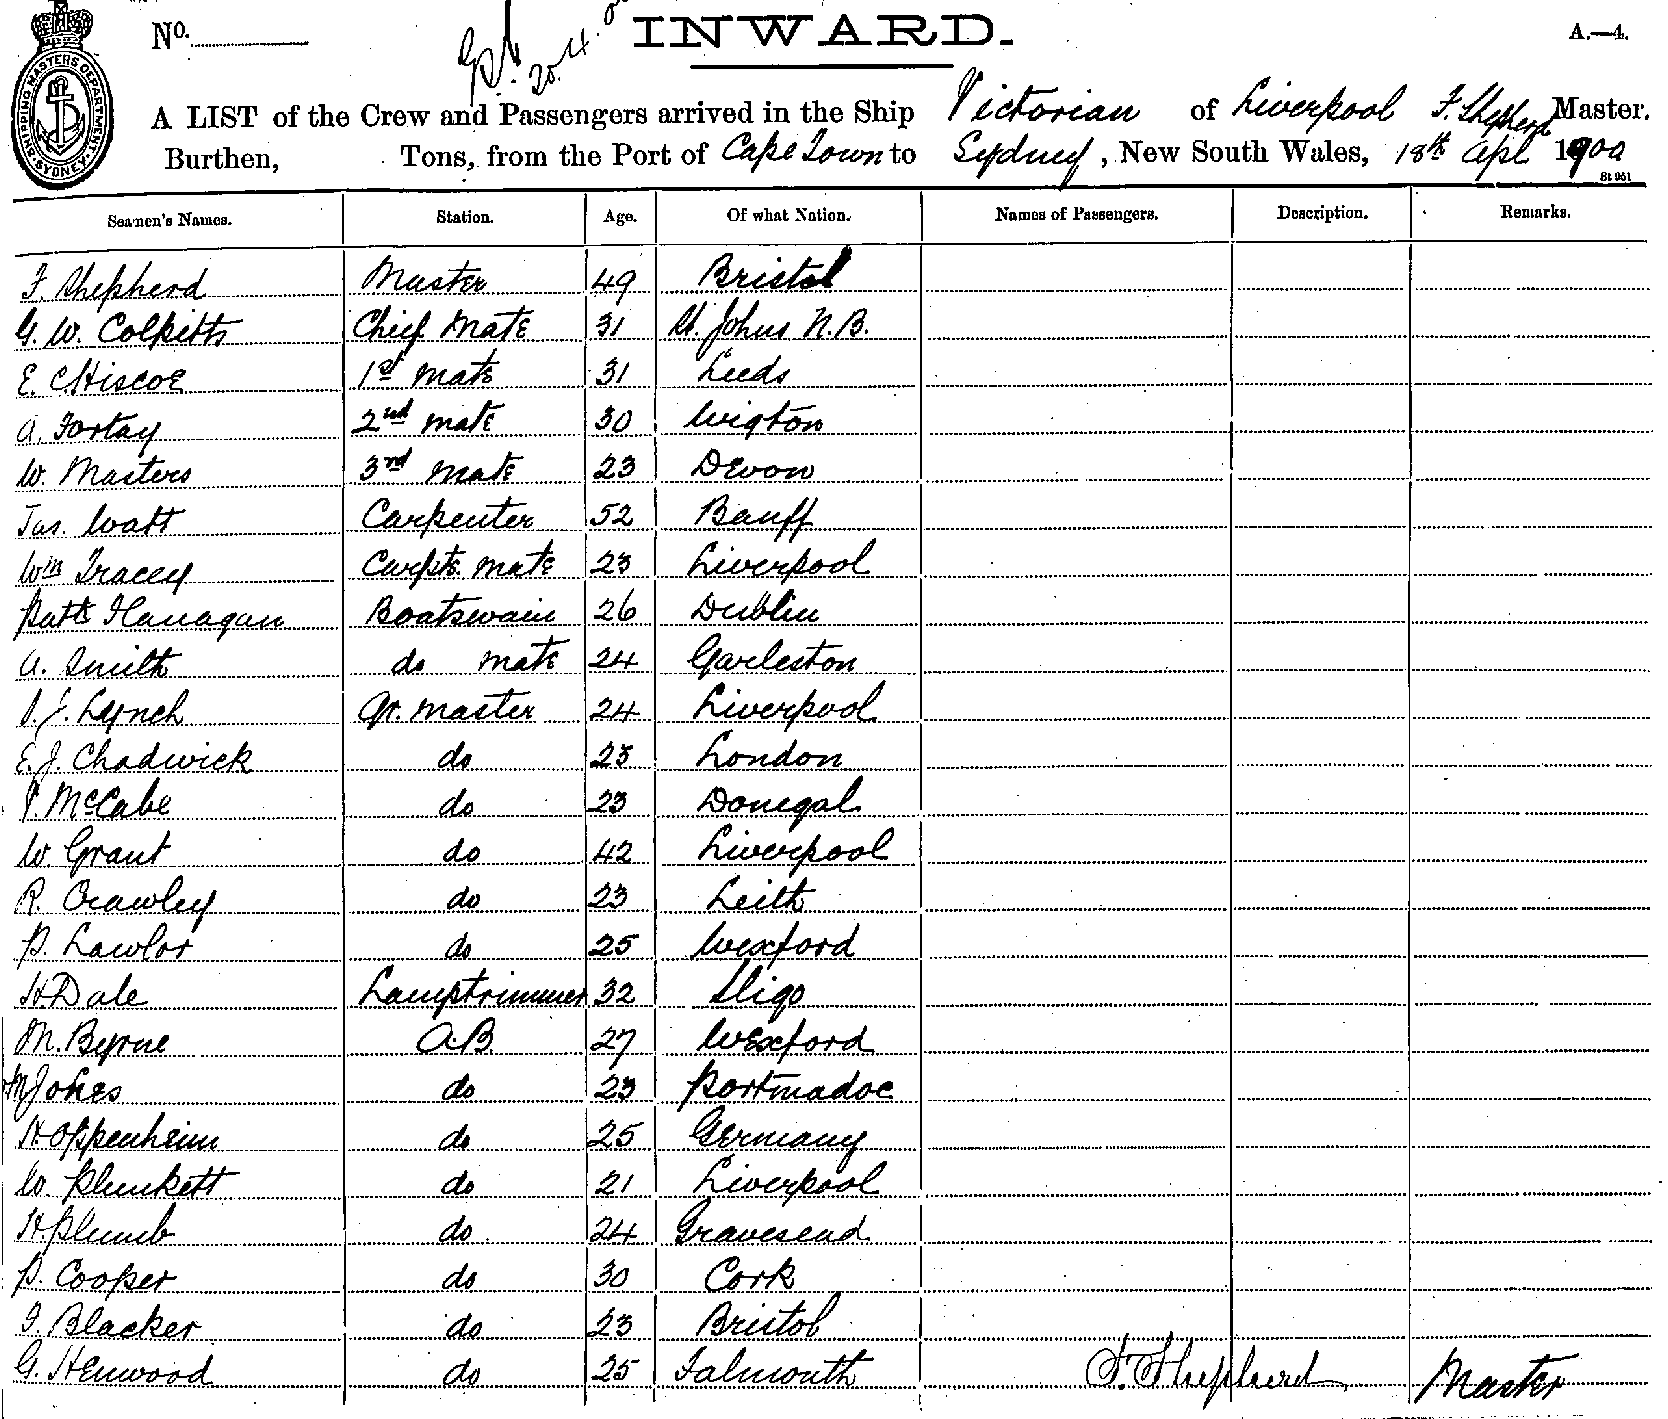 No.
20.4.
INWARD.
A.—4.
SHIPPING MASTERS DEPARTMENT SYDNEY
A LIST of the Crew and Passengers arrived in the Ship Victorian of Liverpool F. Shepherd Master.
Burthen, Tons, from the Port of Cape Town to Sydney, New South Wales, 18th Apl 1900
St 951
Seamen's Names. Station. Age. Of what Nation. Names of Passengers. Description. Remarks.
F. Shepherd Master 49 Bristol
G. W. Colpitts Chief Mate 31 St. Johns N.B.
E. C Hiscoe 1st Mate 31 Leeds
A. Fortay 2nd Mate 30 Wigton
W. Masters 3rd Mate 23 Devon
Jas. Watt Carpenter 52 Banff
Wm Tracey Carpts. mate 23 Liverpool
Patk Flanagan Boatswain 26 Dublin
A. Smith do mate 24 Garleston
J. Lynch Qr. Master 24 Liverpool
E. J. Chadwick do 23 London
McCabe do 23 Donegal
W Grant do 42 Liverpool
R. Crawley do 23 Leith
P. Lawlor do 25 Wexford
H Dale Lamptrimmer 32 Sligo
M. Byrne A.B. 27 Wexford
Jones do 23 Portmadoc
H. Oppenheim do 25 Germany
W. Plunkett do 21 Liverpool
H. Plumb do 24 Gravesend
P. Cooper do 30 Cork
F. Blacker do 23 Bristol
G. Henwood do 25 Falmouth F. Shepherd Master